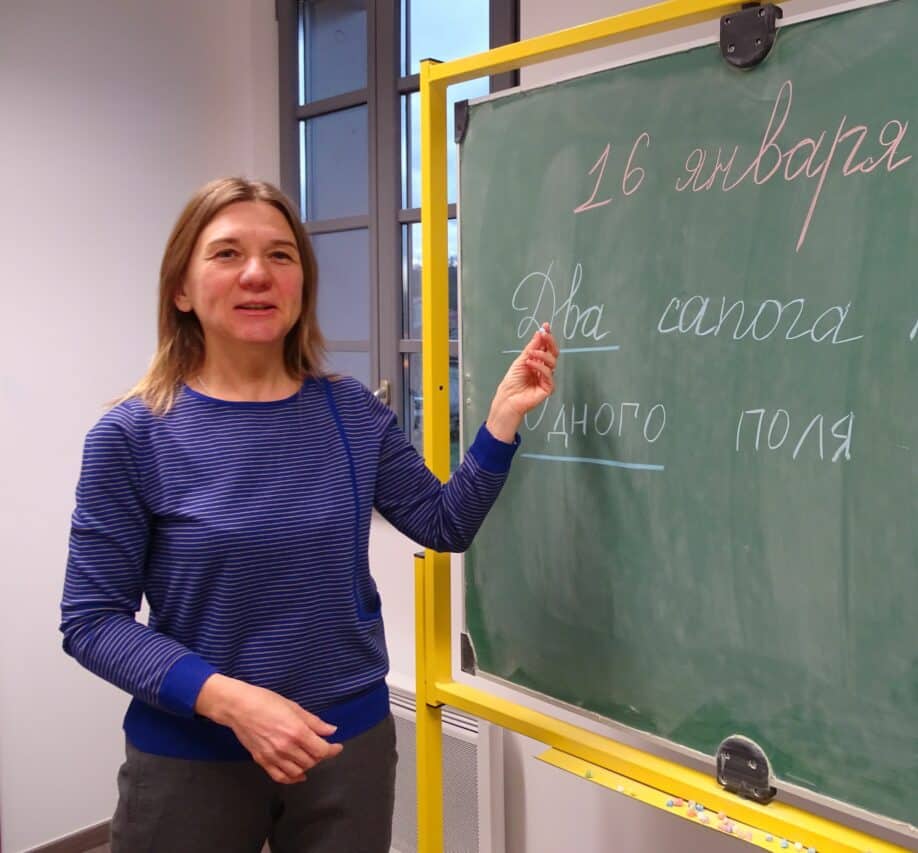 16 января
Два сапога
Одного поля